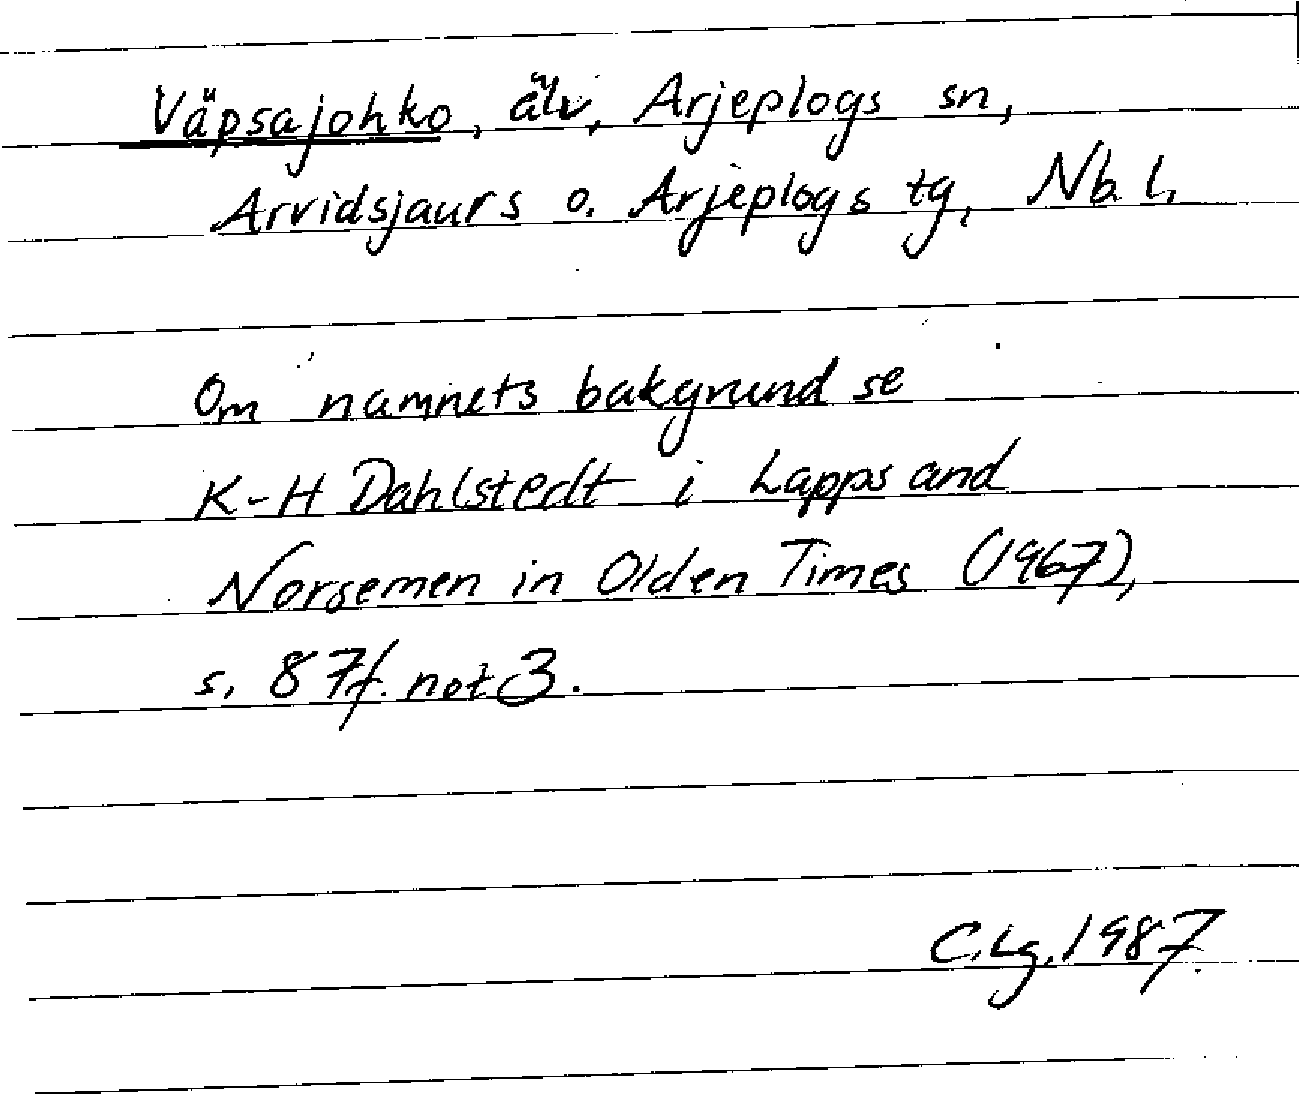 Väpsajohko, älv, Arjeplogs sn,
Arvidsjaurs o. Arjeplogs tg, Nb. l.
Om namnets bakgrund se
K-H Dahlstedt i Lapps and
Norsemen in Olden Times (1967),
s. 87f. not 3.
C.Lg. 1987.